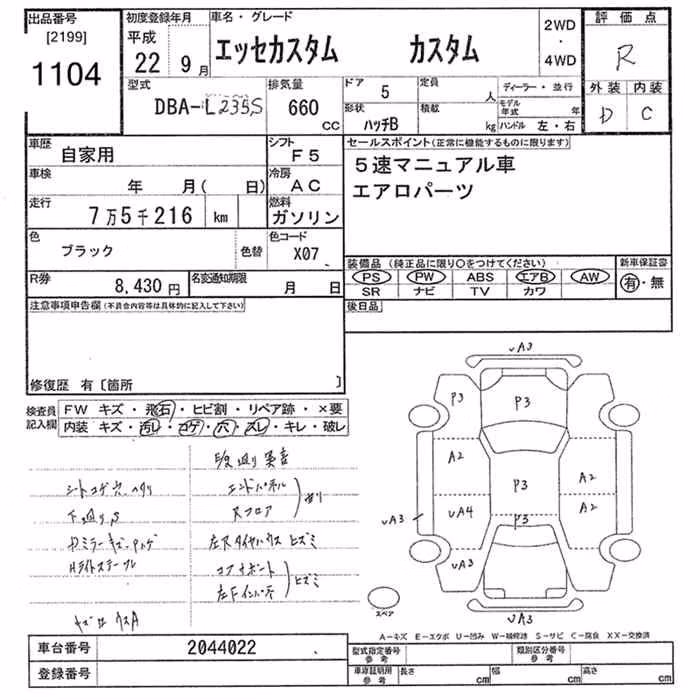 出品番号
[2199]
1104
初度登録年月
平成
22 9月
車名・グレード
エッセカスタム カスタム
2WD
・
4WD
評価点
R
外装 内装
D C
型式
DBA-L235S
排気量
660
CC
ドア 5
定員 人
形状 ハッチB
積載 kg
ディーラー・並行
モデル年式 年
ハンドル 左・右
車歴 自家用
シフト F5
車検 年 月( 日)
冷房 AC
走行 7万5千216 km
燃料 ガソリン
色 ブラック 色替
色コード X07
R券 8,430円
名変通知期限 月 日
セールスポイント(正常に機能するものに限ります)
5速マニュアル車
エアロパーツ
装備品(純正品に限り○をつけてください)
PS PW ABS エアB AW
SR ナビ TV カワ
新車保証書
有・無
後日品
注意事項申告欄(不具合内容等は具体的に記入して下さい)
修復歴 有〔箇所 〕
検査員記入欄
FW キズ・飛石・ヒビ割・リペア跡・×要
内装 キズ・汚レ・コゲ・穴・スレ・キレ・破レ
シートコゲ穴
下廻りS
エンドパネル
Rフロア
左Rタイヤハウス ヒズミ
コアサポート
ヒズミ
左Fインパネ
VA3
P3
P3
A2
P3
A2
VA3
VA4
A2
P3
VA3
VA3
スペア
A-キズ E-エクボ U-凹み W-補修跡 S-サビ C-腐食 XX-交換済
車台番号 2044022
登録番号
型式指定番号 参考
類別区分番号 参考
車庫証明用 参考
長さ cm
幅 cm
高さ cm